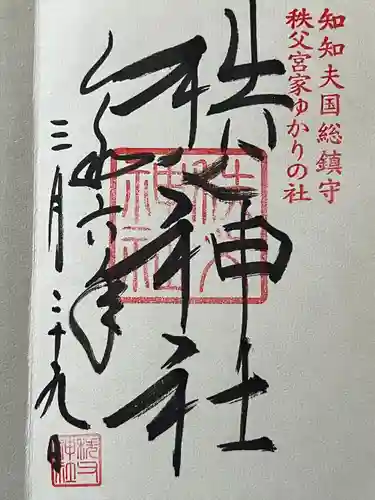 知知夫国総鎮守
秩父宮家ゆかりの社
秩父神社
令和六年
三月二十九日
秩父神社
秩父神社